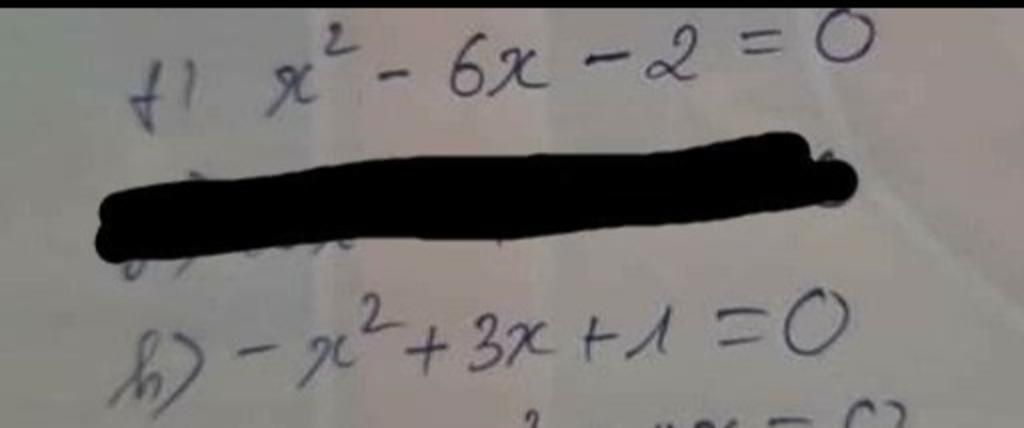 f) x² - 6x - 2 = 0
h) - x² + 3x + 1 = 0